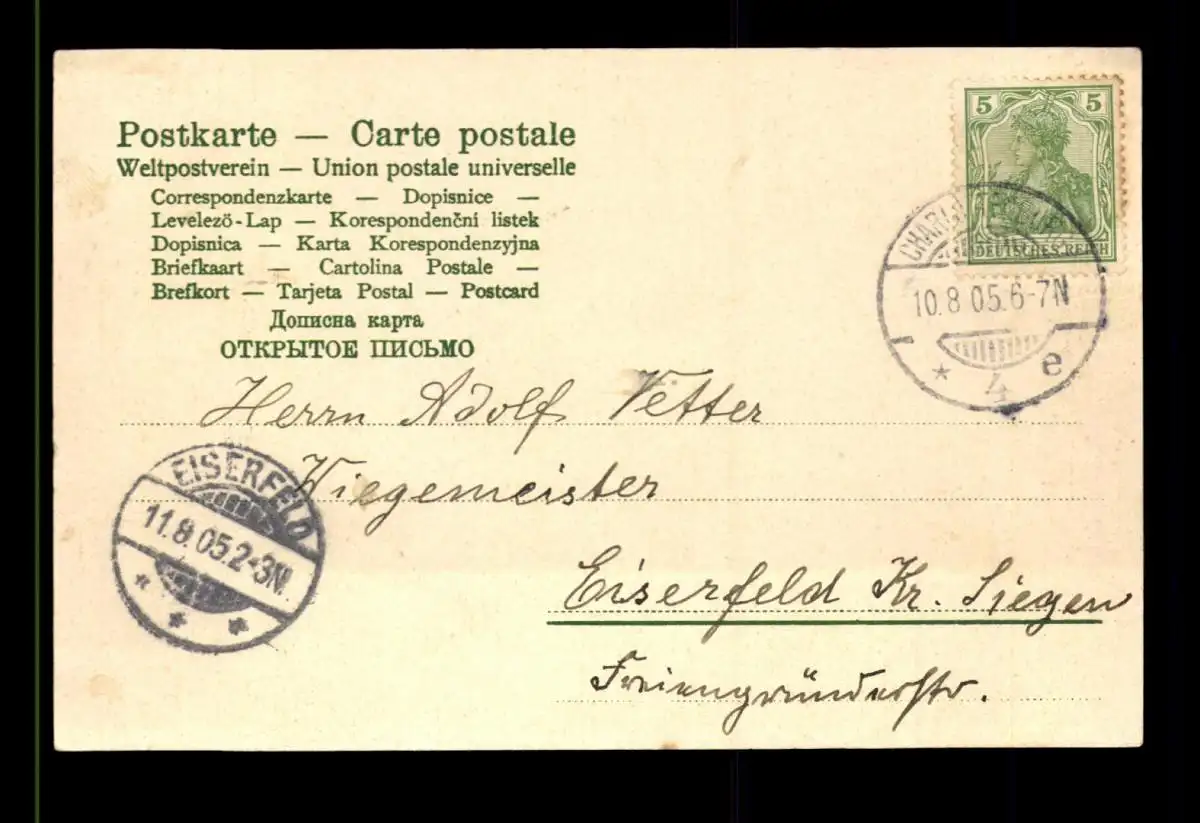 Postkarte — Carte postale
Weltpostverein — Union postale universelle
Correspondenzkarte — Dopisnice —
Levelező-Lap — Korespondenční listek
Dopisnica — Karta Korespondenzyjna
Briefkaart — Cartolina Postale —
Brefkort — Tarjeta Postal — Postcard
Дописна карта
ОТКРЫТОЕ ПИСЬМО
5 5
DEUTSCHES REICH
10.8.05.6-7N
* 4 e
Herrn Adolf Vetter
Wiegemeister
Eiserfeld Kr. Siegen
Freiengründerstr.
EISERFELD
11.8.05.2-3N.
* * *